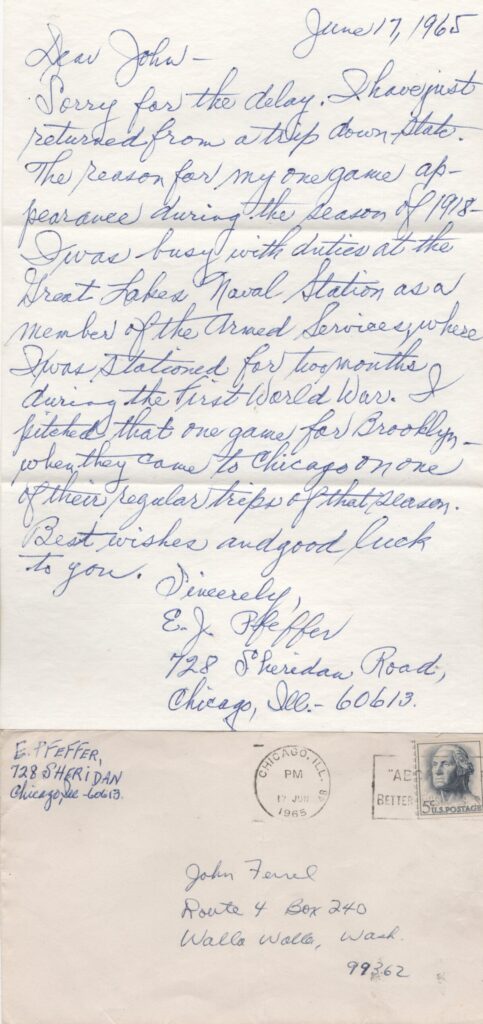 June 17, 1965
Dear John-
Sorry for the delay. I have just
returned from a trip down State.
The reason for my one game ap-
pearance during the season of 1918-
I was busy with duties at the
Great Lakes Naval Station as a
member of the Armed Services, where
I was stationed for two months
during the First World War. I
pitched that one game for Brooklyn-
when they came to Chicago on one
of their regular trips of that season.
Best wishes and good luck
to you.
Sincerely,
E. J. Pfeffer
728 Sheridan Road,
Chicago, Ill.- 60613.
E. PFEFFER,
728 SHERIDAN
Chicago, Ill -60613.
CHICAGO, ILL.
PM
17 JUN
1965
BETTER
5¢ U.S. POSTAGE
John Ferrel
Route 4 Box 240
Walla Walla, Wash.
99362